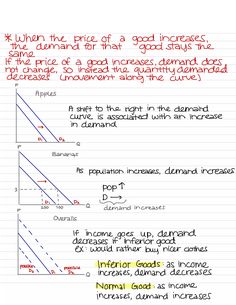 * When the price of a good increases,
the demand for that good stays the
same
If the price of a good increases, demand does
not change, so instead the quantity demanded
decreases (movement along the curve)
Apples
P
A shift to the right in the demand
curve is associated with an increase
in demand
D₁ D₂
Bananas
P
As population increases, demand increases
pop ↑
D →
demand increases
3
D₁ D₂
Overalls
P
If income goes up, demand
decreases if inferior good
ex: would rather buy nicer clothes
Inferior Goods: as income
increases, demand decreases
Normal Good: as income
increases, demand increases
D₂ D₁